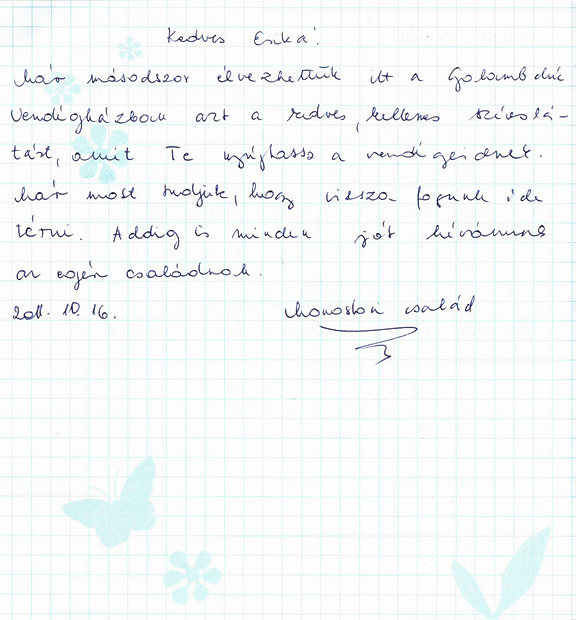 Kedves Erika!
Már másodszor élvezhettük itt a Galambdúc
Vendégházban azt a kedves, kellemes szíveslá-
tást, amit Te nyújtassz a vendégeidnek.
Már most tudjuk, hogy vissza fogunk ide
térni. Addig is minden jót kívánunk
az egész családnak.
2011. 10. 16. család